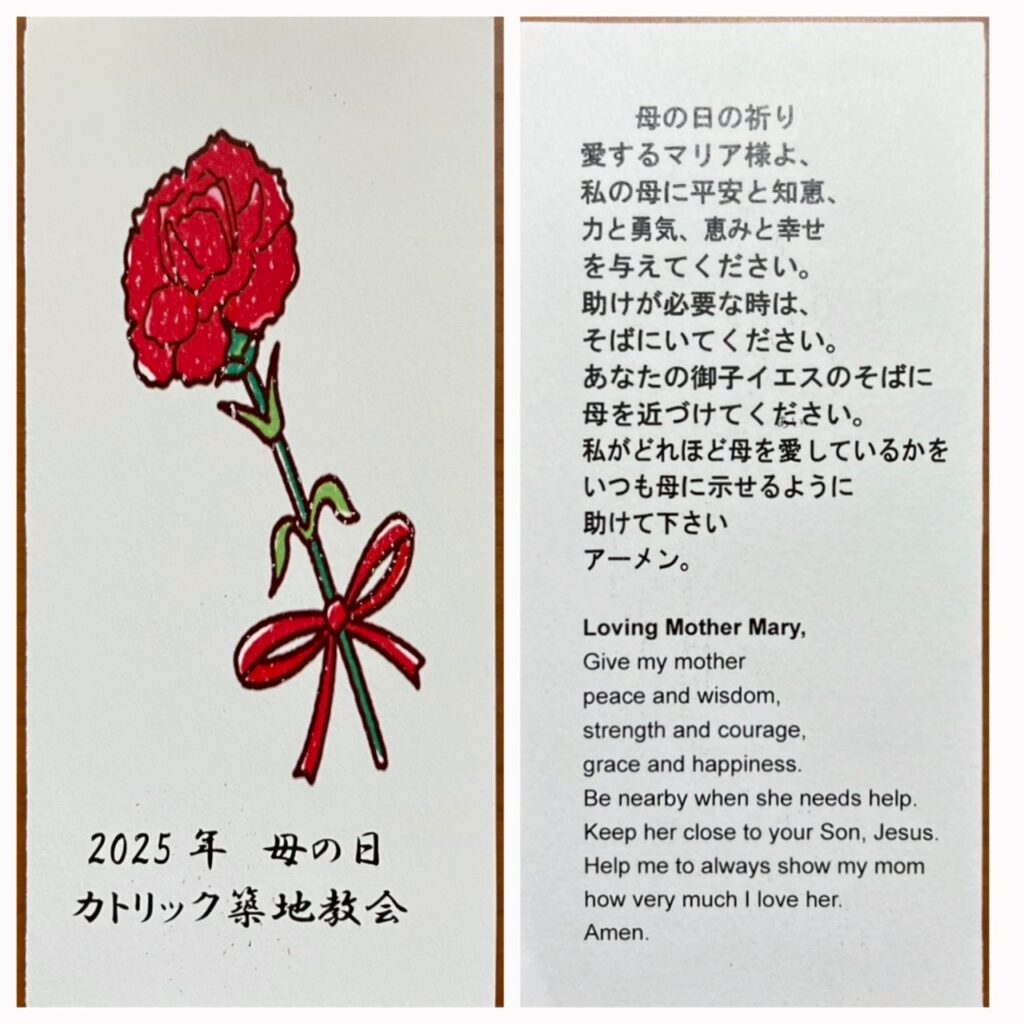 2025年 母の日
カトリック築地教会
母の日の祈り
愛するマリア様よ、
私の母に平安と知恵、
力と勇気、恵みと幸せ
を与えてください。
助けが必要な時は、
そばにいてください。
あなたの御子イエスのそばに
母を近づけてください。
私がどれほど母を愛しているかを
いつも母に示せるように
助けて下さい
アーメン。
Loving Mother Mary,
Give my mother
peace and wisdom,
strength and courage,
grace and happiness.
Be nearby when she needs help.
Keep her close to your Son, Jesus.
Help me to always show my mom
how very much I love her.
Amen.